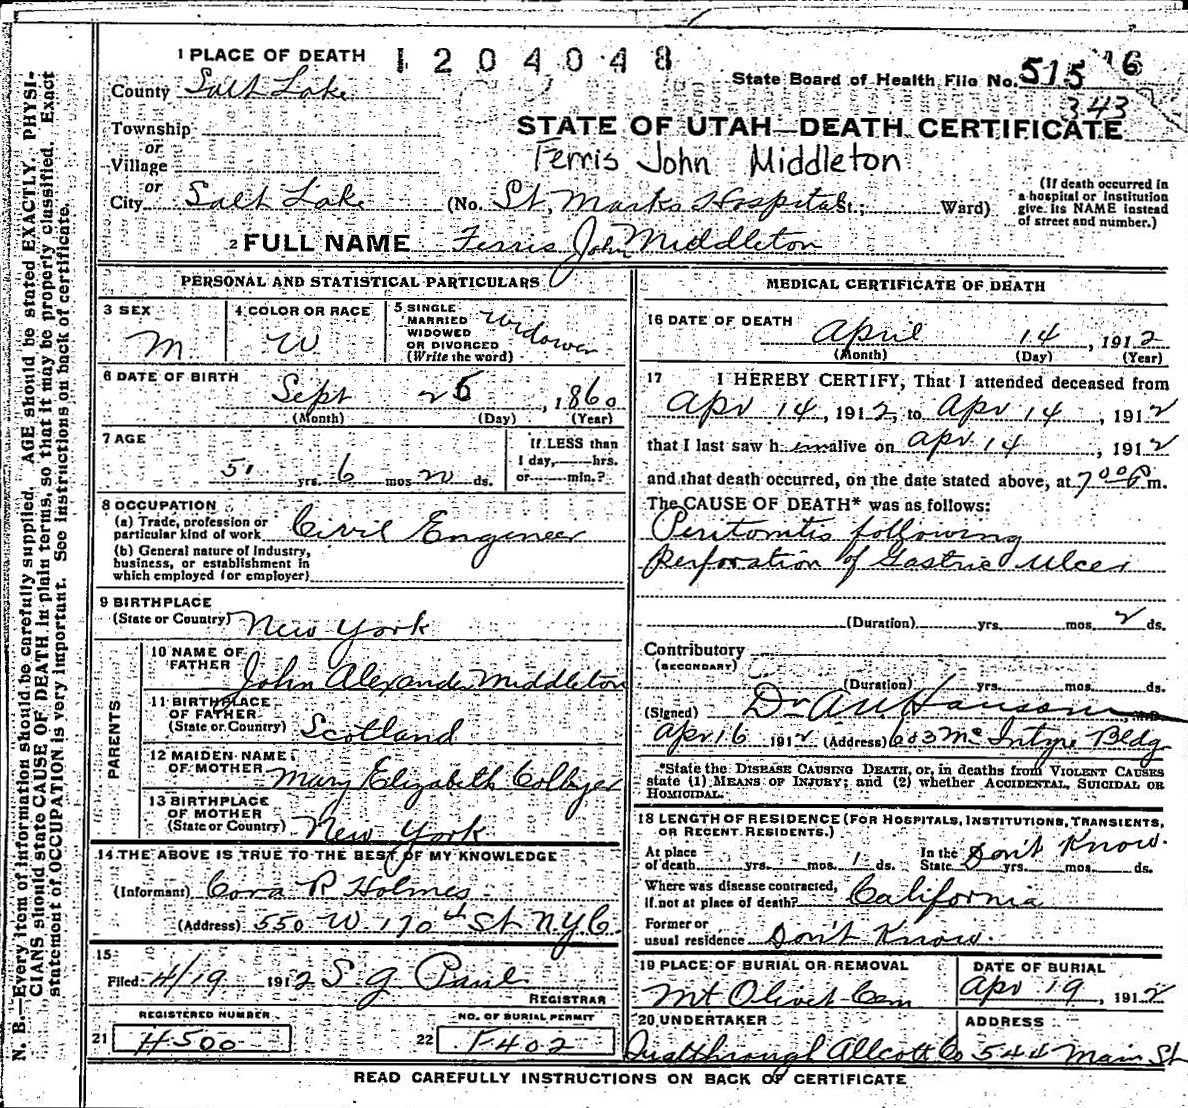 1 PLACE OF DEATH
1204048
State Board of Health File No. 515 16
343
County Salt Lake
Township
or
Village
or
City Salt Lake
STATE OF UTAH—DEATH CERTIFICATE
Ferris John Middleton
(No. St. Marks Hospital St.; Ward)
(If death occurred in
a hospital or institution
give its NAME instead
of street and number.)
2 FULL NAME Ferris John Middleton
PERSONAL AND STATISTICAL PARTICULARS
3 SEX
M
4 COLOR OR RACE
W
5 SINGLE
MARRIED
WIDOWED
OR DIVORCED
(Write the word)
Widower
6 DATE OF BIRTH
Sept 25, 1860
(Month) (Day) (Year)
7 AGE
51 yrs. 6 mos 20 ds.
If LESS than
1 day, hrs.
or min.?
8 OCCUPATION
(a) Trade, profession or
particular kind of work Civil Engineer
(b) General nature of Industry,
business, or establishment in
which employed (or employer)
9 BIRTHPLACE
(State or Country) New York
PARENTS
10 NAME OF
FATHER John Alexander Middleton
11 BIRTHPLACE
OF FATHER
(State or Country) Scotland
12 MAIDEN NAME
OF MOTHER Mary Elizabeth Collyer
13 BIRTHPLACE
OF MOTHER
(State or Country) New York
14 THE ABOVE IS TRUE TO THE BEST OF MY KNOWLEDGE
(Informant) Cora R Holmes
(Address) 550 W 170th St N.Y.C.
15
Filed 4/19 1912 S. G. Paul
REGISTRAR
REGISTERED NUMBER
21 H500
NO. OF BURIAL PERMIT
22 F402
MEDICAL CERTIFICATE OF DEATH
16 DATE OF DEATH
April 14, 1912
(Month) (Day) (Year)
17 I HEREBY CERTIFY, That I attended deceased from
Apr 14, 1912, to Apr 14, 1912
that I last saw h im alive on Apr 14, 1912
and that death occurred, on the date stated above, at 7 00 P m.
The CAUSE OF DEATH* was as follows:
Peritonitis following
perforation of Gastric Ulcer
(Duration) yrs. mos. 2 ds.
Contributory
(SECONDARY)
(Duration) yrs. mos. ds.
(Signed) Dr A W Hanson, M.D.
Apr 16 1912 (Address) 603 Mc Intyre Bldg
*State the DISEASE CAUSING DEATH, or, in deaths from VIOLENT CAUSES
state (1) MEANS OF INJURY; and (2) whether ACCIDENTAL, SUICIDAL OR
HOMICIDAL.
18 LENGTH OF RESIDENCE (FOR HOSPITALS, INSTITUTIONS, TRANSIENTS,
OR RECENT RESIDENTS.)
At place
of death yrs. mos. 1 ds.
In the
State Don't Know. yrs. mos. ds.
Where was disease contracted,
if not at place of death? California
Former or
usual residence Don't Know.
19 PLACE OF BURIAL OR REMOVAL
Mt Olivet Cem
DATE OF BURIAL
Apr 19, 1912
20 UNDERTAKER
Allcott Co
ADDRESS
544 Main St
READ CAREFULLY INSTRUCTIONS ON BACK OF CERTIFICATE
N. B.—Every item of information should be carefully supplied. AGE should be stated EXACTLY. PHYSI-
CIANS should state CAUSE OF DEATH in plain terms, so that it may be properly classified. Exact
statement of OCCUPATION is very important. See instructions on back of certificate.